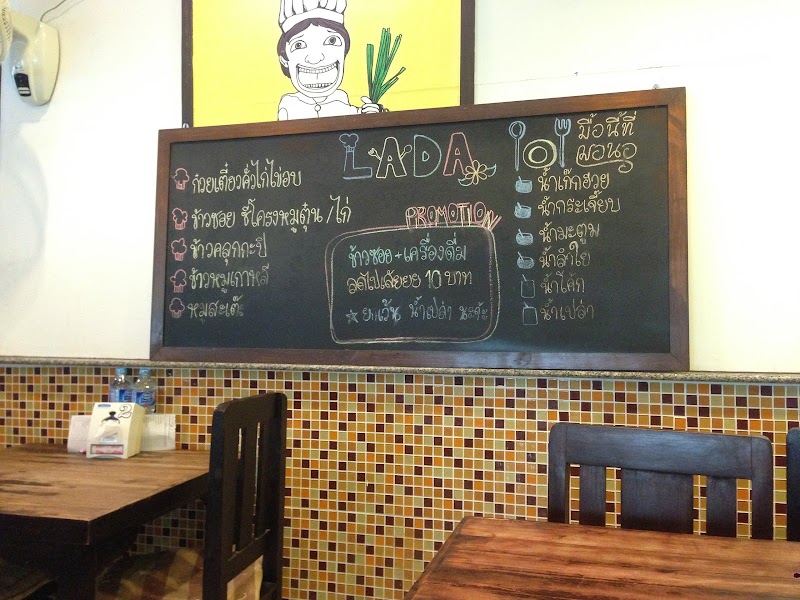 LADA
มื้อนี้ที่
ก๋วยเตี๋ยวคั่วไก่ไข่อบ
ข้าวซอย ซี่โครงหมูตุ๋น /ไก่
ข้าวคลุกกะปิ
ข้าวหมูเกาหลี
หมูสะเต๊ะ
PROMOTION
ข้าวซอย + เครื่องดื่ม
ลดไปเล้ยยย 10 บาท
ยกเว้น น้ำเปล่า นะจ๊ะ
น้ำเก๊กฮวย
น้ำกระเจี๊ยบ
น้ำมะตูม
น้ำลำใย
น้ำโค้ก
น้ำเปล่า